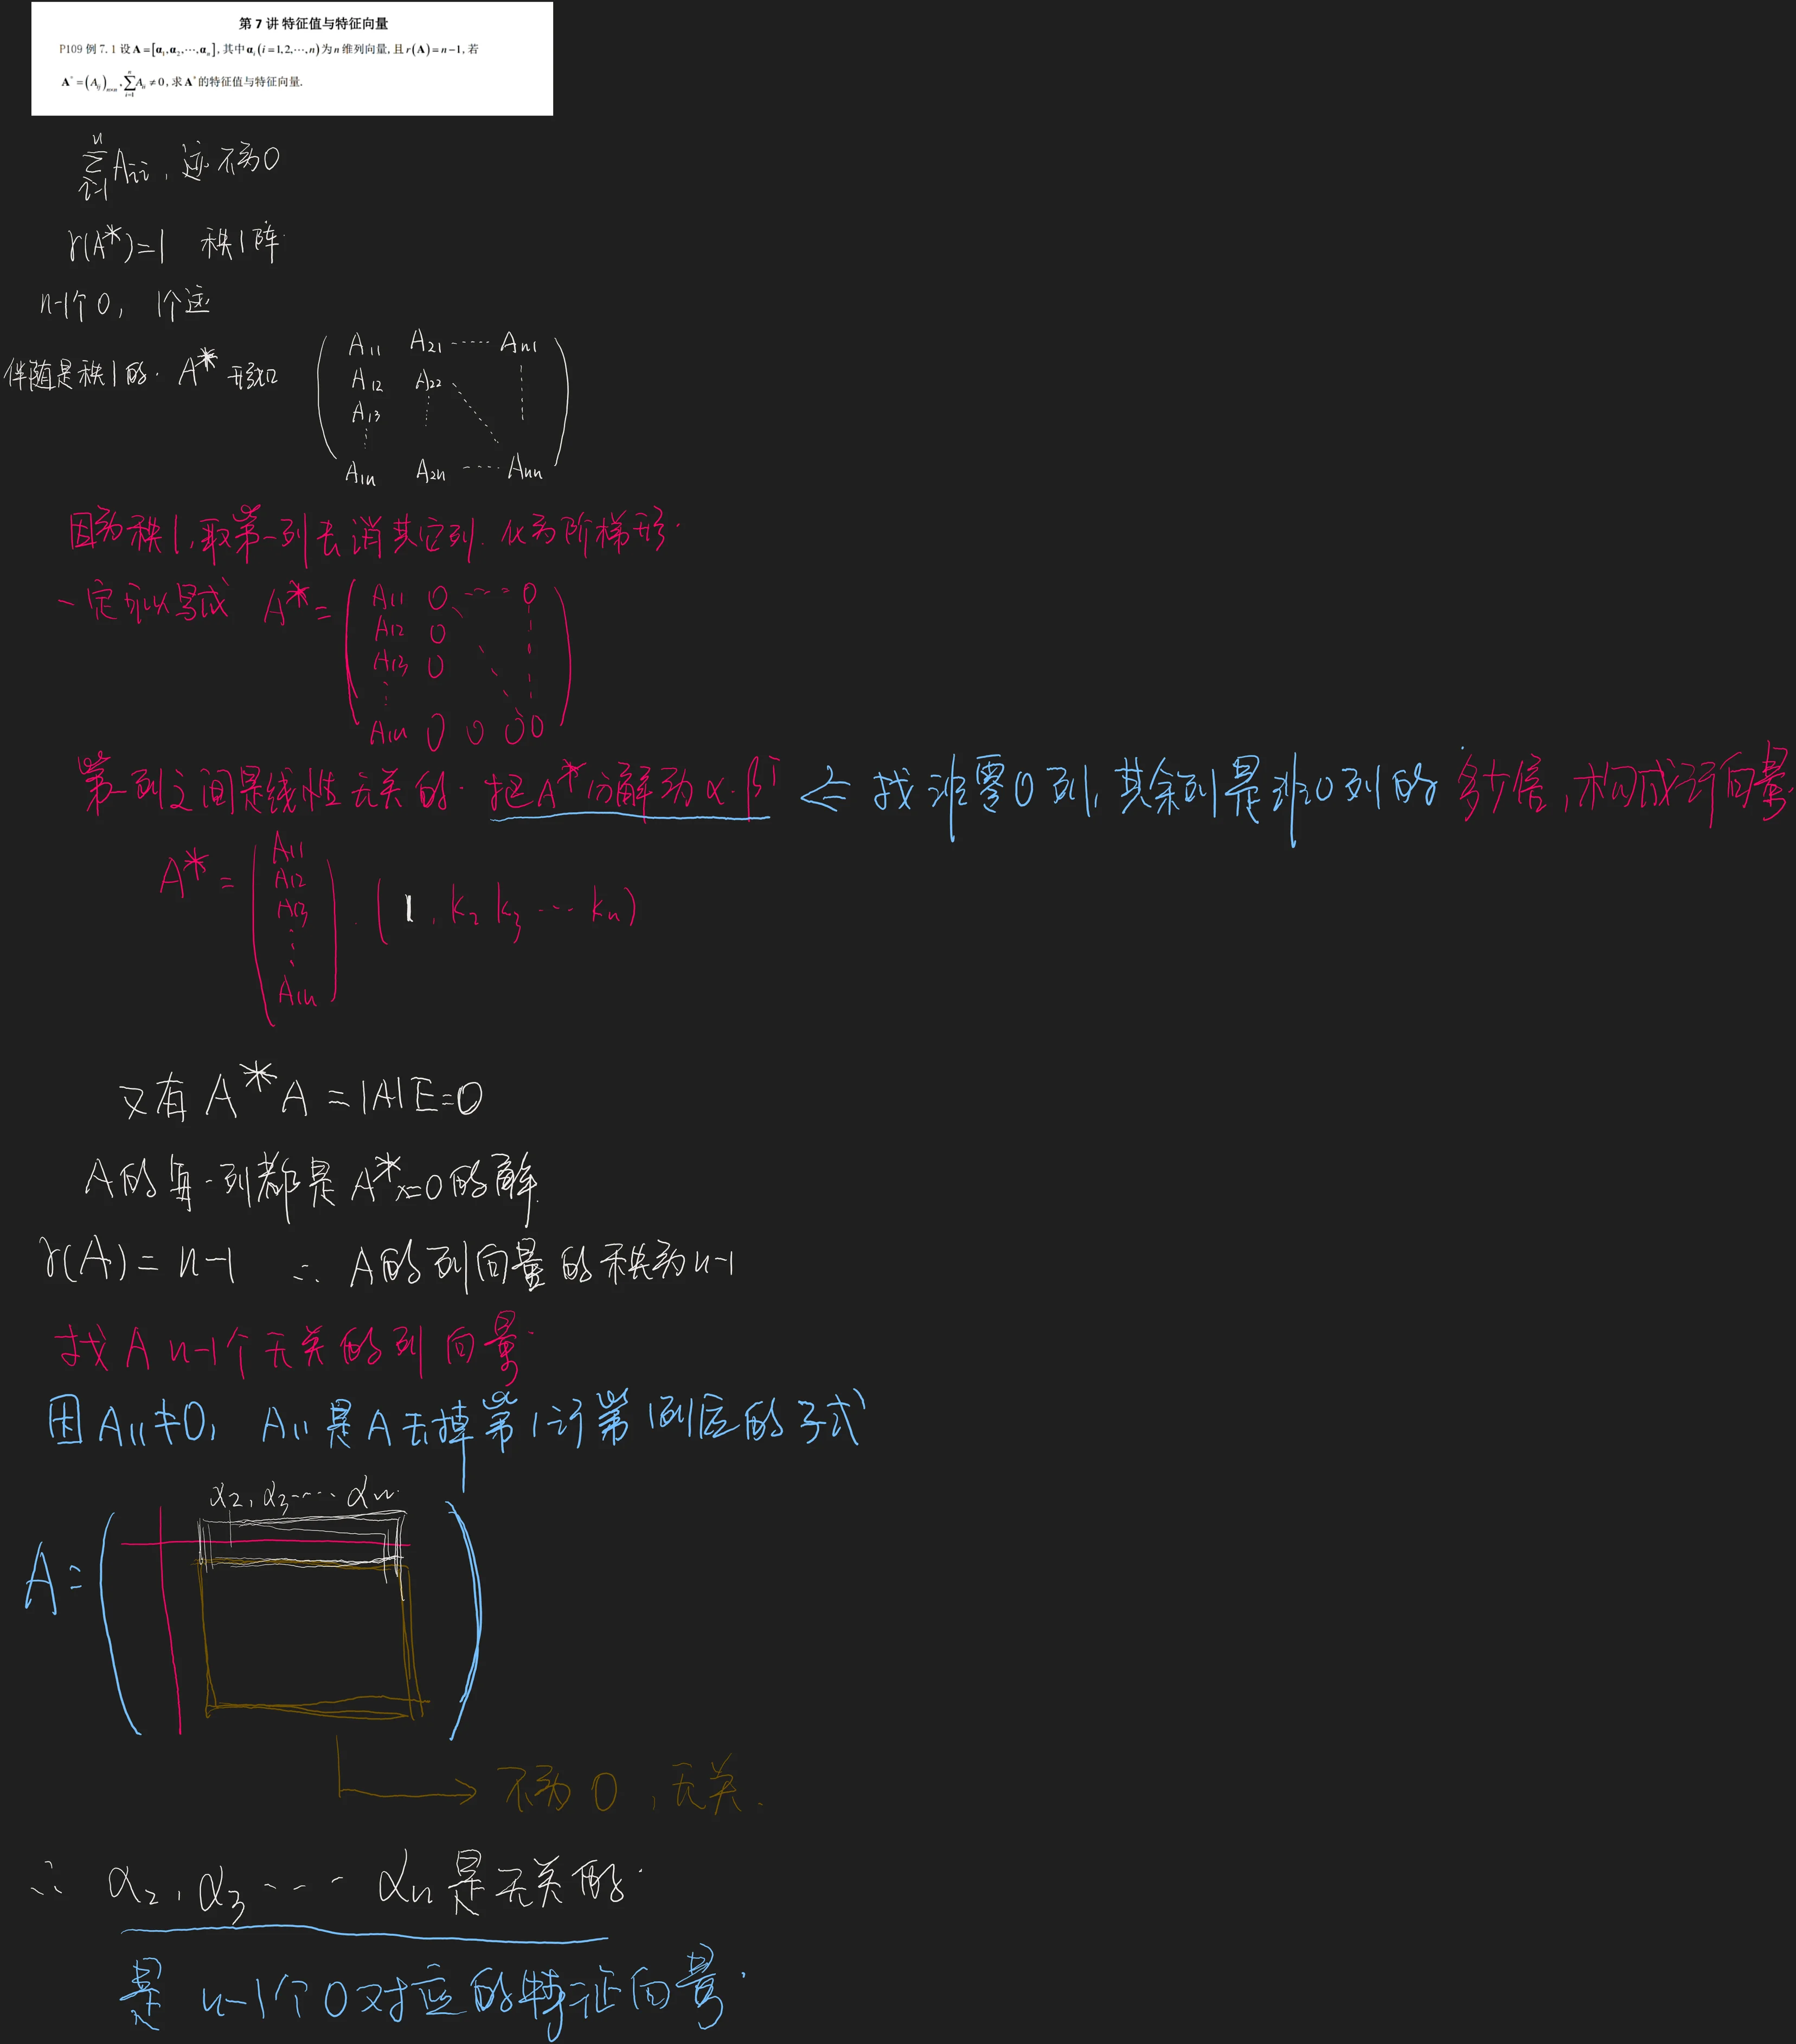 第 7 讲 特征值与特征向量
P109 例 7.1 设 A = [α₁,α₂,⋯,αₙ], 其中 αᵢ (i = 1,2,⋯,n) 为 n 维列向量, 且 r(A) = n−1, 若
A* = (Aᵢⱼ)ₙₓₙ, ∑ᵢ₌₁ⁿ Aᵢᵢ ≠ 0, 求 A* 的特征值与特征向量.
∑ᵢ₌₁ⁿ Aᵢᵢ, 迹不为0
r(A*)=1 秩1阵.
n-1个0, 1个迹
伴随是秩1的. A* 形如
A₁₁ A₂₁ ⋯⋯ Aₙ₁
A₁₂ A₂₂
A₁₃
A₁ₙ A₂ₙ ⋯⋯ Aₙₙ
因为秩1, 取第一列去消其它列. 化为阶梯形.
一定可以写成 A* =
A₁₁ 0 ⋯ 0
A₁₂ 0
A₁₃ 0
A₁ₙ 0 0 0 0
第一列之间是线性无关的. 把A*分解为 α·βᵀ ⇐ 找非零0列, 其余列是非0列的 多少倍, 构成行向量.
A* =
A₁₁
A₁₂
A₁₃
⋮
A₁ₙ
· (1, k₂ k₃ ⋯ kₙ)
又有 A*A = |A|E=0
A的每一列都是 A*x=0 的解.
r(A) = n-1 ∴ A的列向量的秩为n-1
找A n-1个无关的列向量.
因A₁₁≠0, A₁₁是A去掉第1行第1列后的子式
α₂, α₃ ⋯⋯ αₙ
A =
不为0, 无关.
∴ α₂, α₃ ⋯⋯ αₙ是无关的.
是 n-1个0对应的特征向量.